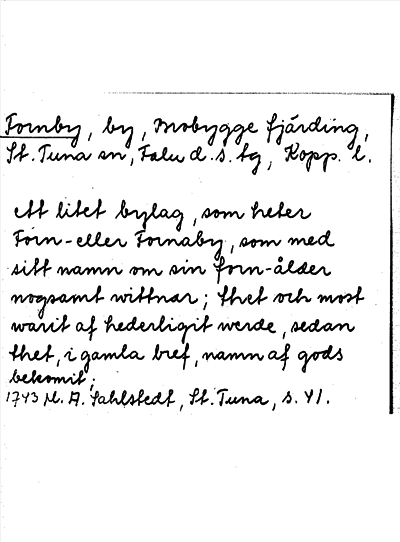 Fornby, by, Mobygge fjärding,
St. Tuna sn, Falu d. s. tg, Kopp. l.
ett litet bylag, som heter
Forn- eller Fornaby, som med
sitt namn om sin forn-ålder
nogsamt wittnar; thet och most
warit af hederligit werde, sedan
thet, i gamla bref, namn af gods
bekomit;
1743 M. A. Sahlstedt, St. Tuna, s. 41.